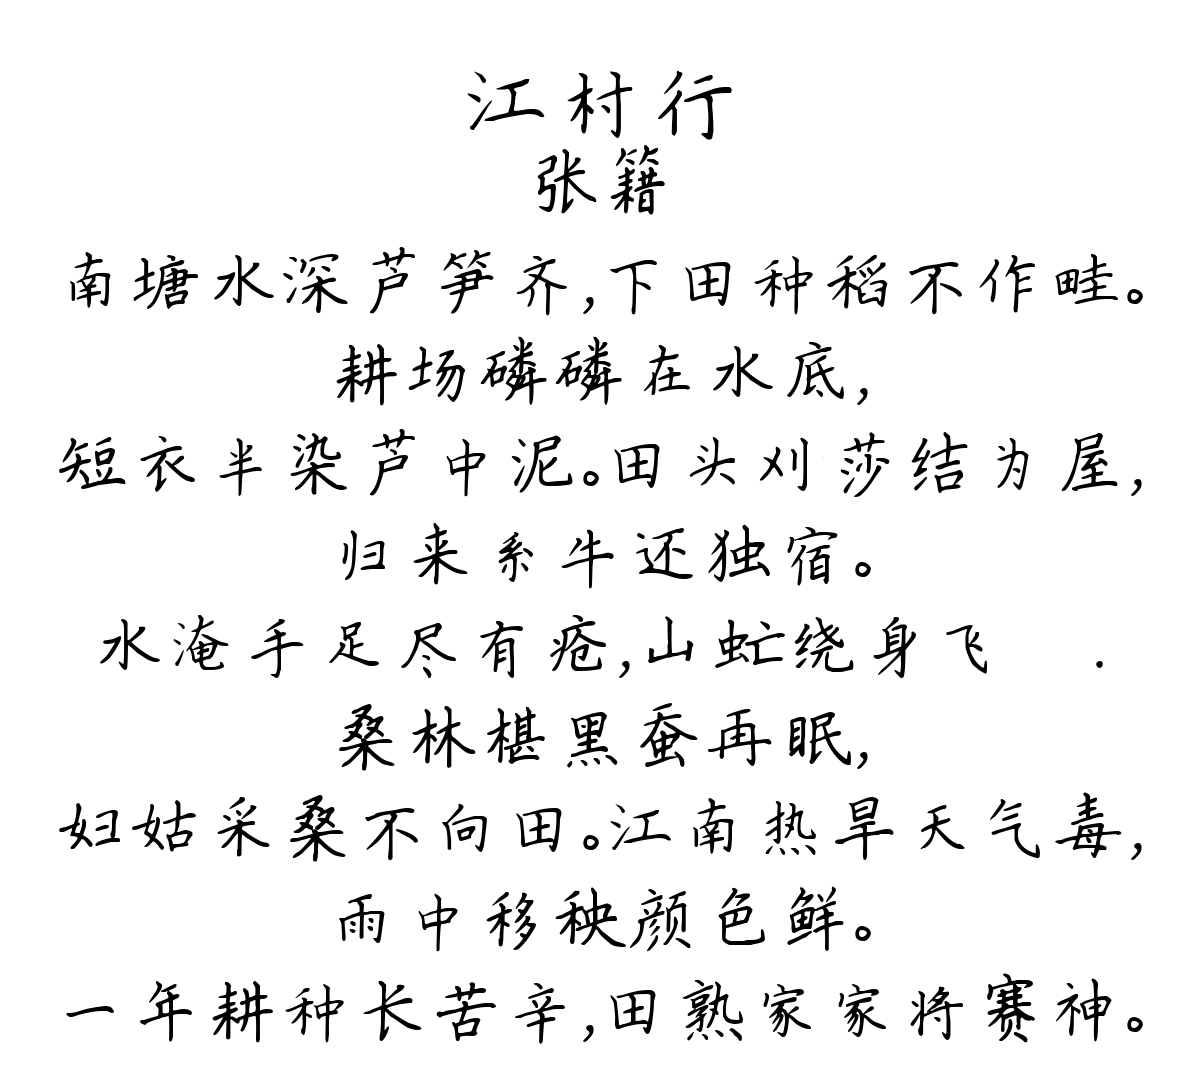 江村行
张籍
南塘水深芦笋齐,下田种稻不作畦。
耕场磷磷在水底,
短衣半染芦中泥。田头刈莎结为屋,
归来系牛还独宿。
水淹手足尽有疮,山虻绕身飞 .
桑林椹黑蚕再眠,
妇姑采桑不向田。江南热旱天气毒,
雨中移秧颜色鲜。
一年耕种长苦辛,田熟家家将赛神。